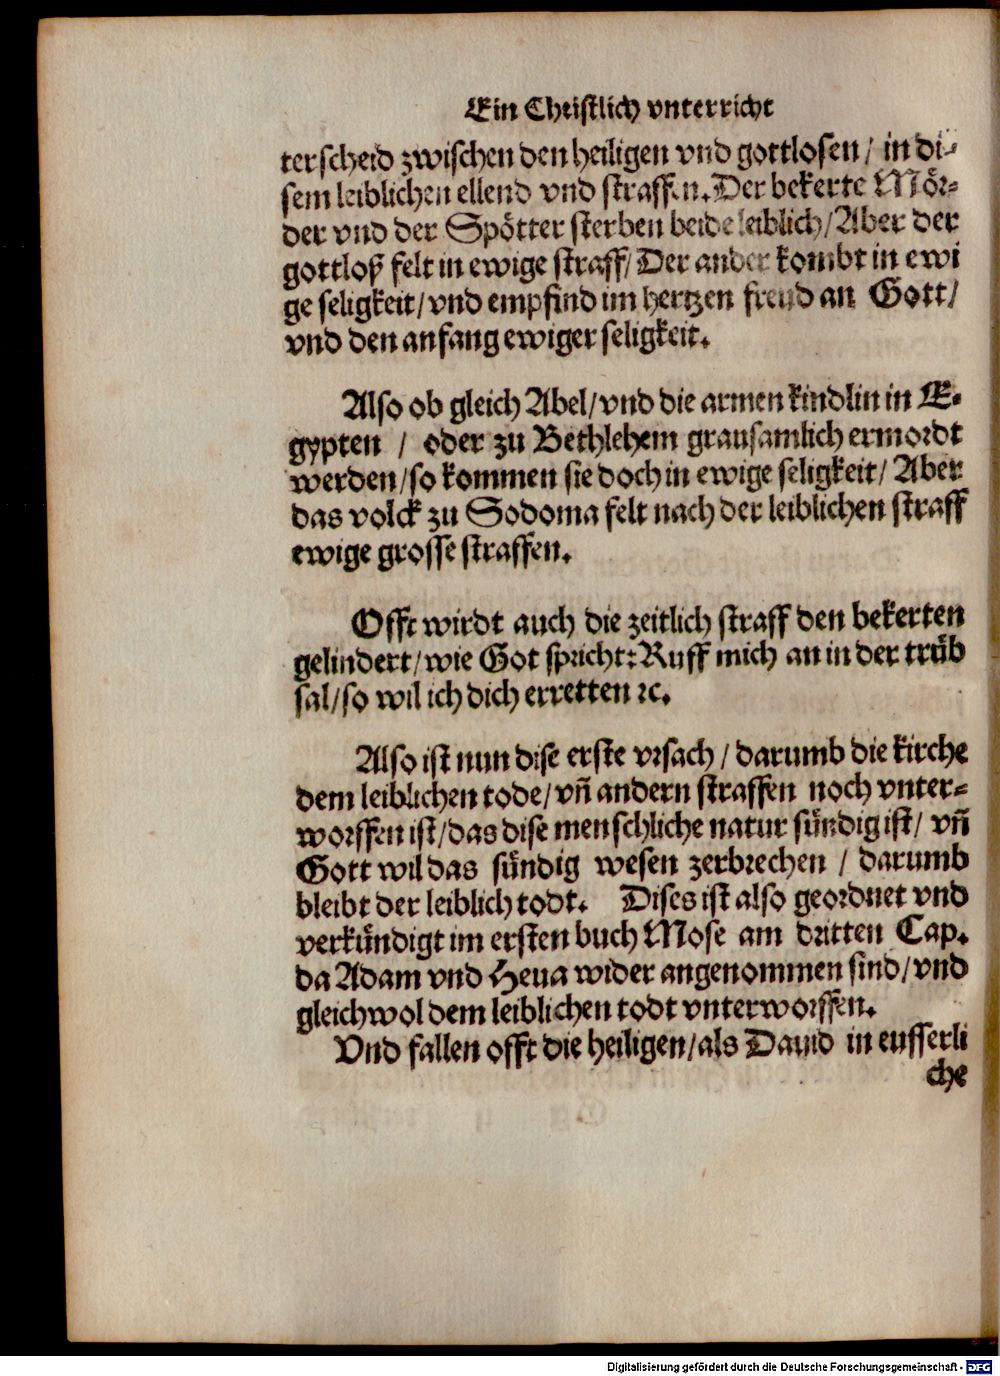 Ein Christlich vnterricht
terscheid zwischen den heiligen vnd gottlosen / in di⸗
sem leiblichen ellend vnd straffen. Der bekerte Mör⸗
der vnd der Spötter sterben beide leiblich / Aber der
gottloß felt in ewige straff / Der ander kombt in ewi
ge seligkeit / vnd empfind im hertzen freud an Gott /
vnd den anfang ewiger seligkeit.
Also ob gleich Abel / vnd die armen kindlin in E⸗
gypten / oder zu Bethlehem grausamlich ermordt
werden / so kommen sie doch in ewige seligkeit / Aber
das volck zu Sodoma felt nach der leiblichen straff
ewige grosse straffen.
Offt wirdt auch die zeitlich straff den bekerten
gelindert / wie Got spricht: Ruff mich an in der trüb
sal / so wil ich dich erretten ꝛc.
Also ist nun dise erste vrsach / darumb die kirche
dem leiblichen tode / vñ andern straffen noch vnter⸗
worffen ist / das dise menschliche natur sündig ist / vñ
Gott wil das sündig wesen zerbrechen / darumb
bleibt der leiblich todt. Dises ist also geordnet vnd
verkündigt im ersten buch Mose am dritten Cap.
da Adam vnd Heua wider angenommen sind / vnd
gleichwol dem leiblichen todt vnterworffen.
Vnd fallen offt die heiligen / als Dauid in eusserli
che
Digitalisierung gefördert durch die Deutsche Forschungsgemeinschaft - DFG